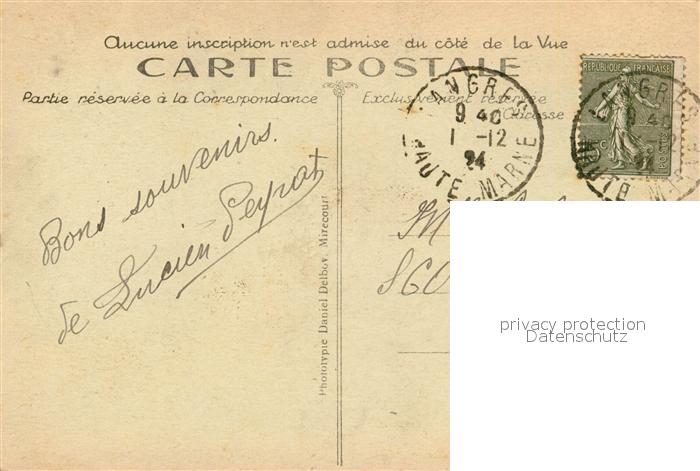 Aucune inscription n'est admise du côté de la Vue
CARTE POSTALE
Partie réservée à la Correspondance
Exclusivement réservée
Adresse
LANGRES
9 40
1 -12
24
HAUTE MARNE
REPUBLIQUE FRANÇAISE
POSTES
LANGRES
9 40
HAUTE MARNE
Bons souvenirs.
de Lucien Peyrat
Phototypie Daniel Delboy, Mirecourt
M
privacy protection
Datenschutz